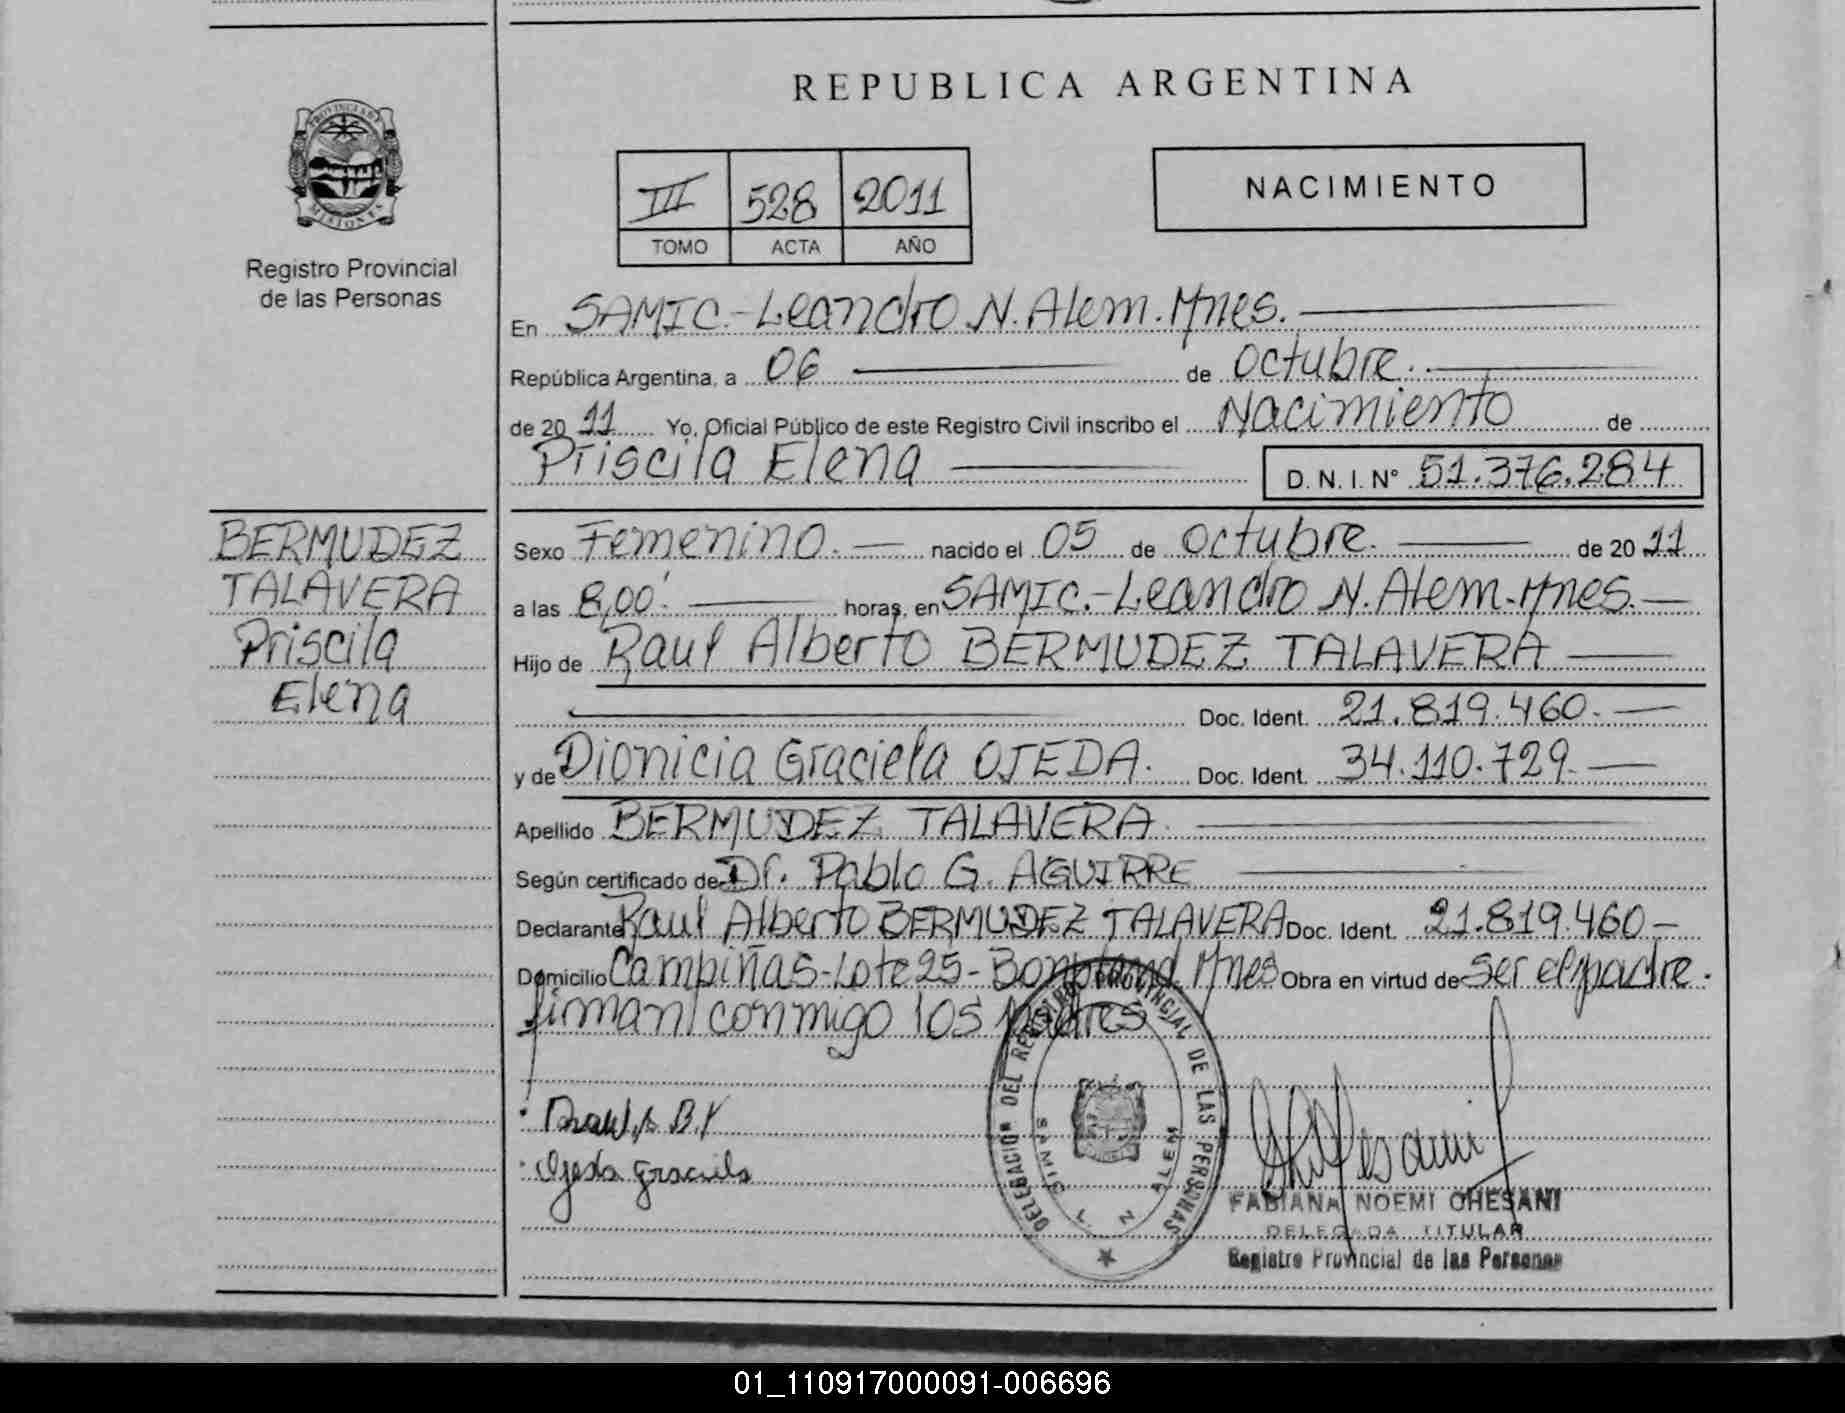 REPUBLICA ARGENTINA
PROVINCIA DE
MISIONES
Registro Provincial
de las Personas
III 528 2011
TOMO ACTA AÑO
NACIMIENTO
En SAMIC.-Leandro N. Alem. Mnes.
República Argentina, a 06 de octubre.
de 20 11 Yo, Oficial Público de este Registro Civil inscribo el Nacimiento de
Priscila Elena D. N. I. N° 51.376.284
BERMUDEZ
TALAVERA
Priscila
Elena
Sexo Femenino. nacido el 05 de octubre. de 20 11
a las 8,00' horas, en SAMIC.-Leandro N. Alem-Mnes.
Hijo de Raul Alberto BERMUDEZ TALAVERA
Doc. Ident. 21.819.460.
y de Dionicia Graciela OJEDA. Doc. Ident. 34.110.729.
Apellido BERMUDEZ TALAVERA.
Según certificado de Dr. Pablo G. AGUIRRE
Declarante Raul Alberto BERMUDEZ TALAVERA Doc. Ident. 21.819.460-
Domicilio Campiñas-Lote 25-Bonpland. Mnes Obra en virtud de ser el padre.
firman conmigo los Padres
DELEGACION DEL REGISTRO PROVINCIAL DE LAS PERSONAS
SAMIC L. N. ALEM
Ojeda Graciela
FABIANA NOEMI CHESANI
DELEGADA TITULAR
Registro Provincial de las Personas
01_110917000091-006696